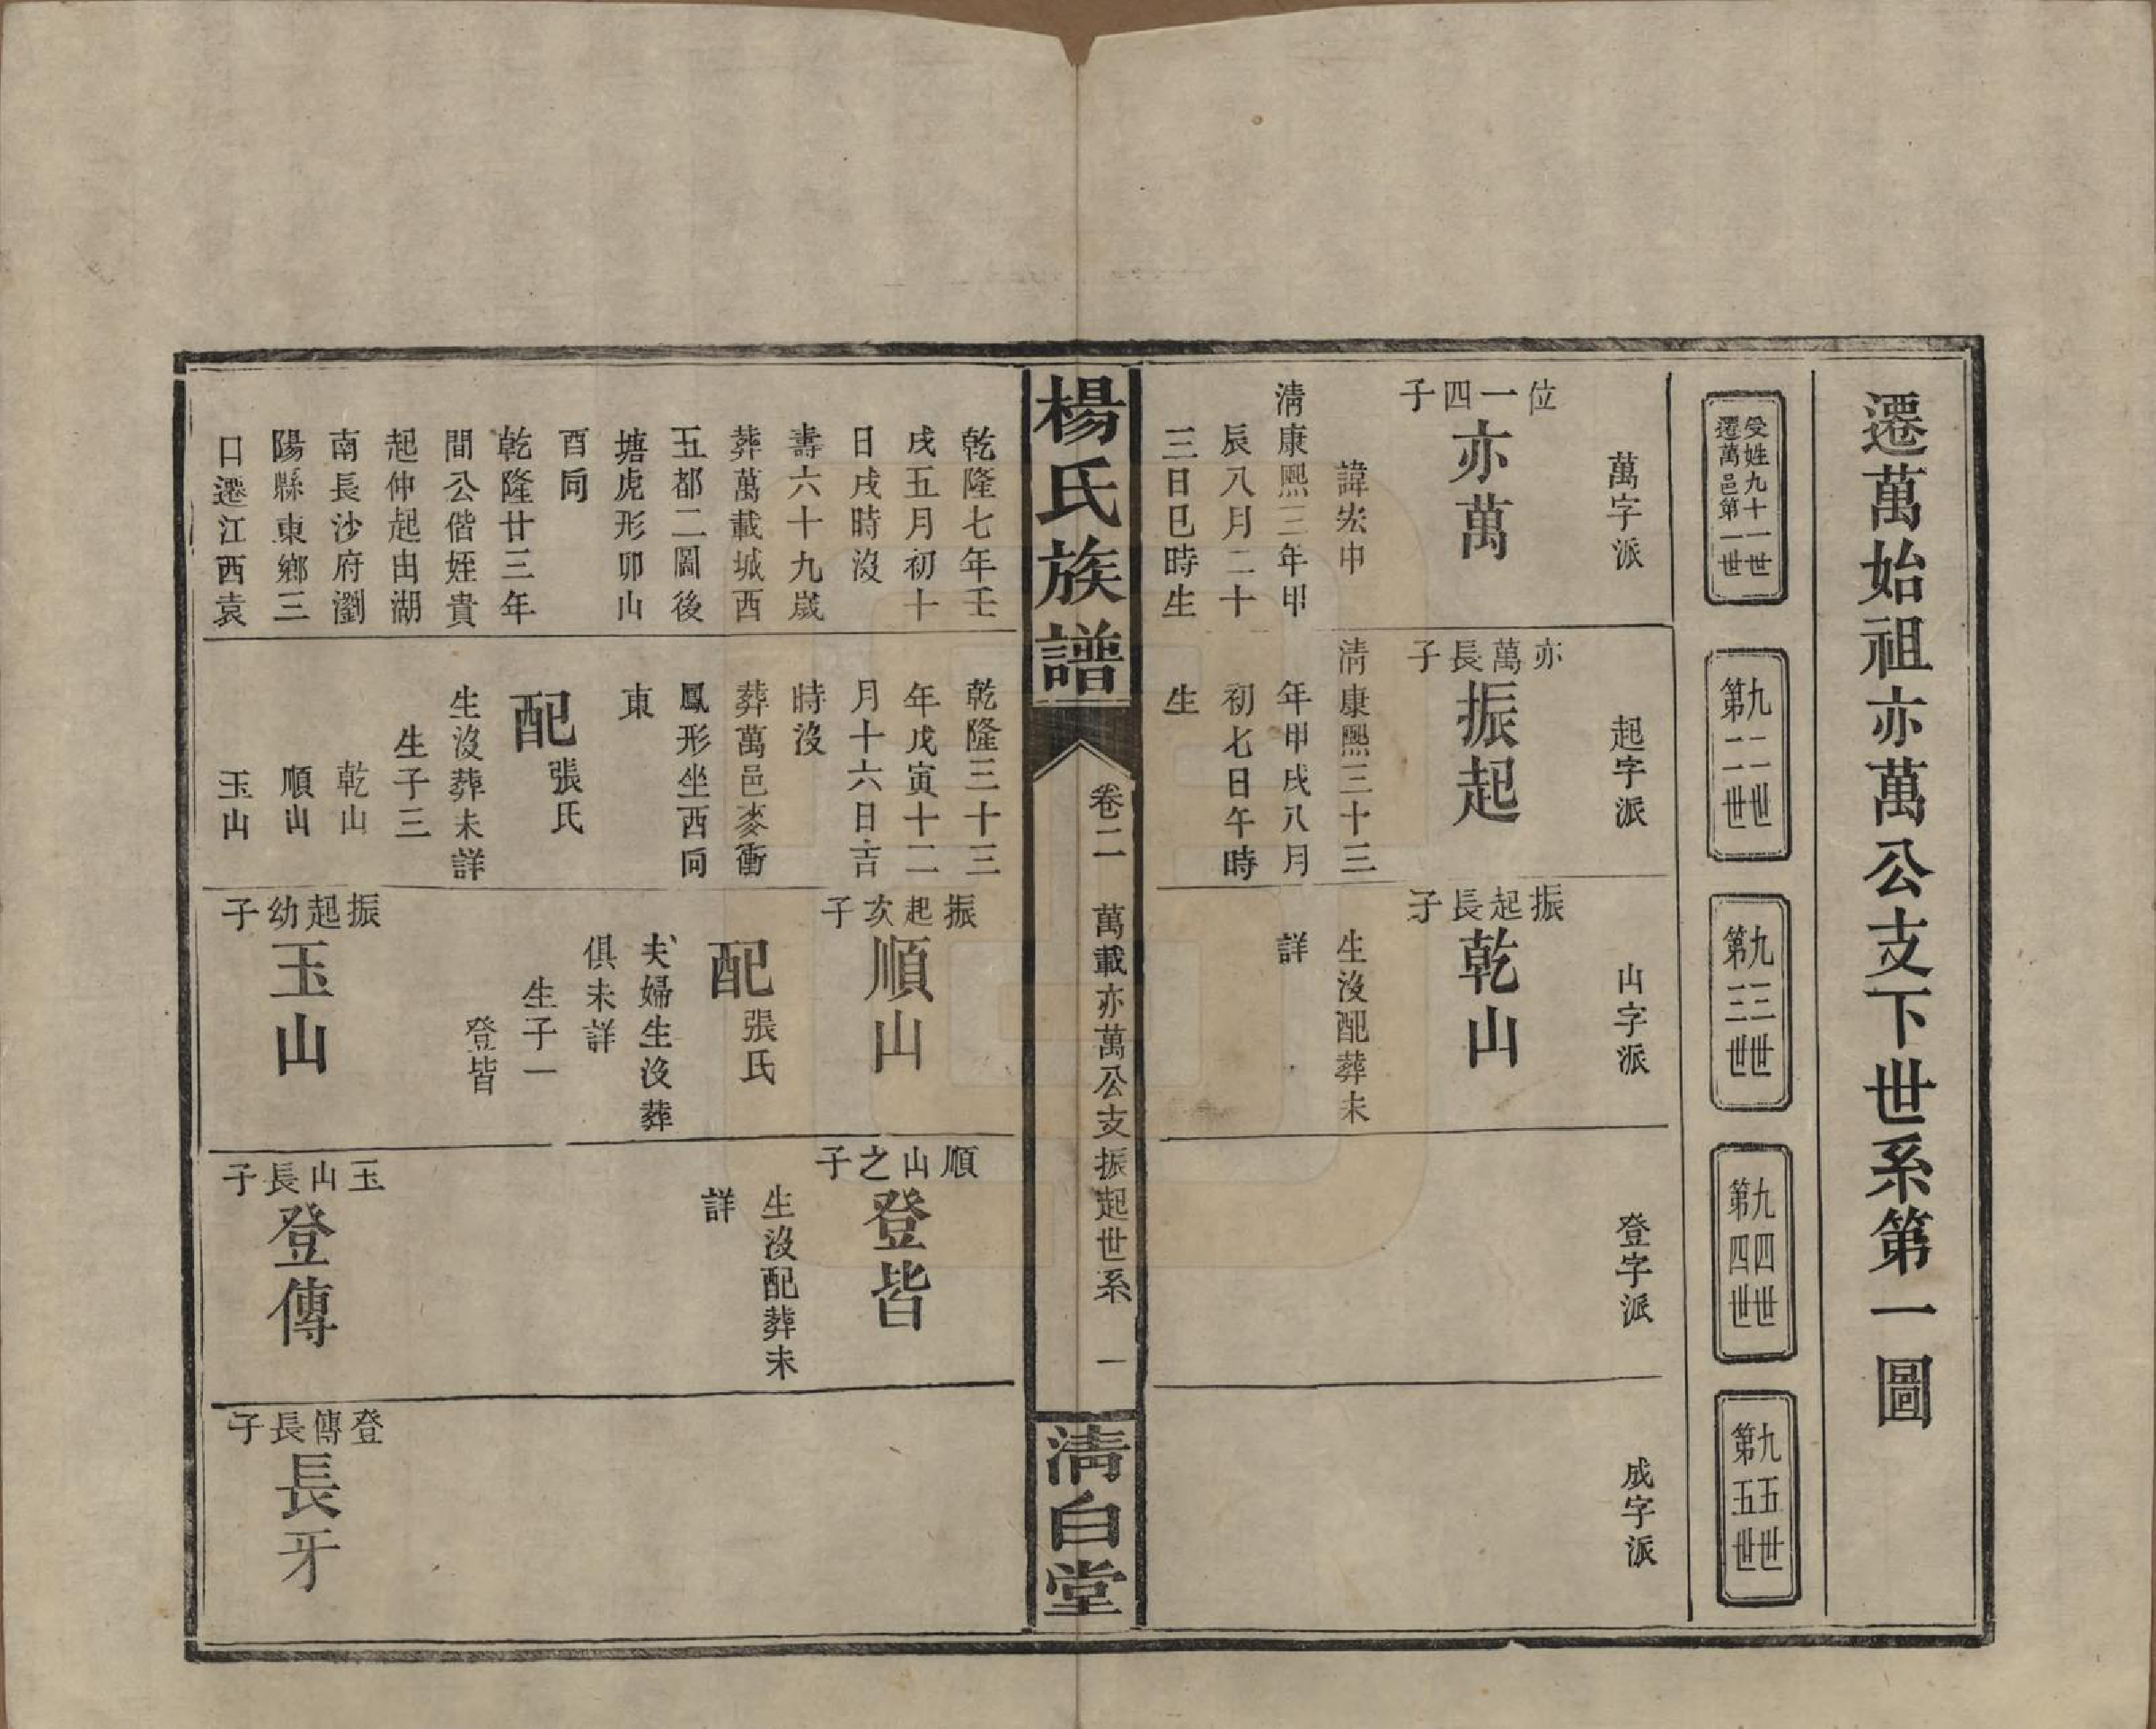 遷萬始祖亦萬公支下世系第一圖
受姓九十一世
遷萬邑第一世
九二世
第二世
九三世
第三世
九四世
第四世
九五世
第五世
萬字派
位一四子
亦萬
諱宏申
清康熙三年甲
辰八月二十
三日巳時生
起字派
亦萬長子
振起
清康熙三十三
年甲戌八月
初七日午時
生
山字派
振起長子
乾山
生沒配葬未
詳
登字派
成字派
楊氏族譜
卷二
萬載亦萬公支振起世系
一
清白堂
乾隆七年壬
戌五月初十
日戌時沒
壽六十九歲
葬萬載城西
五都二圖後
塘虎形卯山
酉向
乾隆廿三年
間公偕姪貴
起仲起由湖
南長沙府瀏
陽縣東鄉三
口遷江西袁
乾隆三十三
年戊寅十二
月十六日吉
時沒
葬萬邑麥衝
鳳形坐西向
東
配張氏
生沒葬未詳
生子三
乾山
順山
玉山
振起次子
順山
配張氏
夫婦生沒葬
俱未詳
生子一
登皆
振起幼子
玉山
順山之子
登皆
生沒配葬未
詳
玉山長子
登傳
登傳長子
長牙